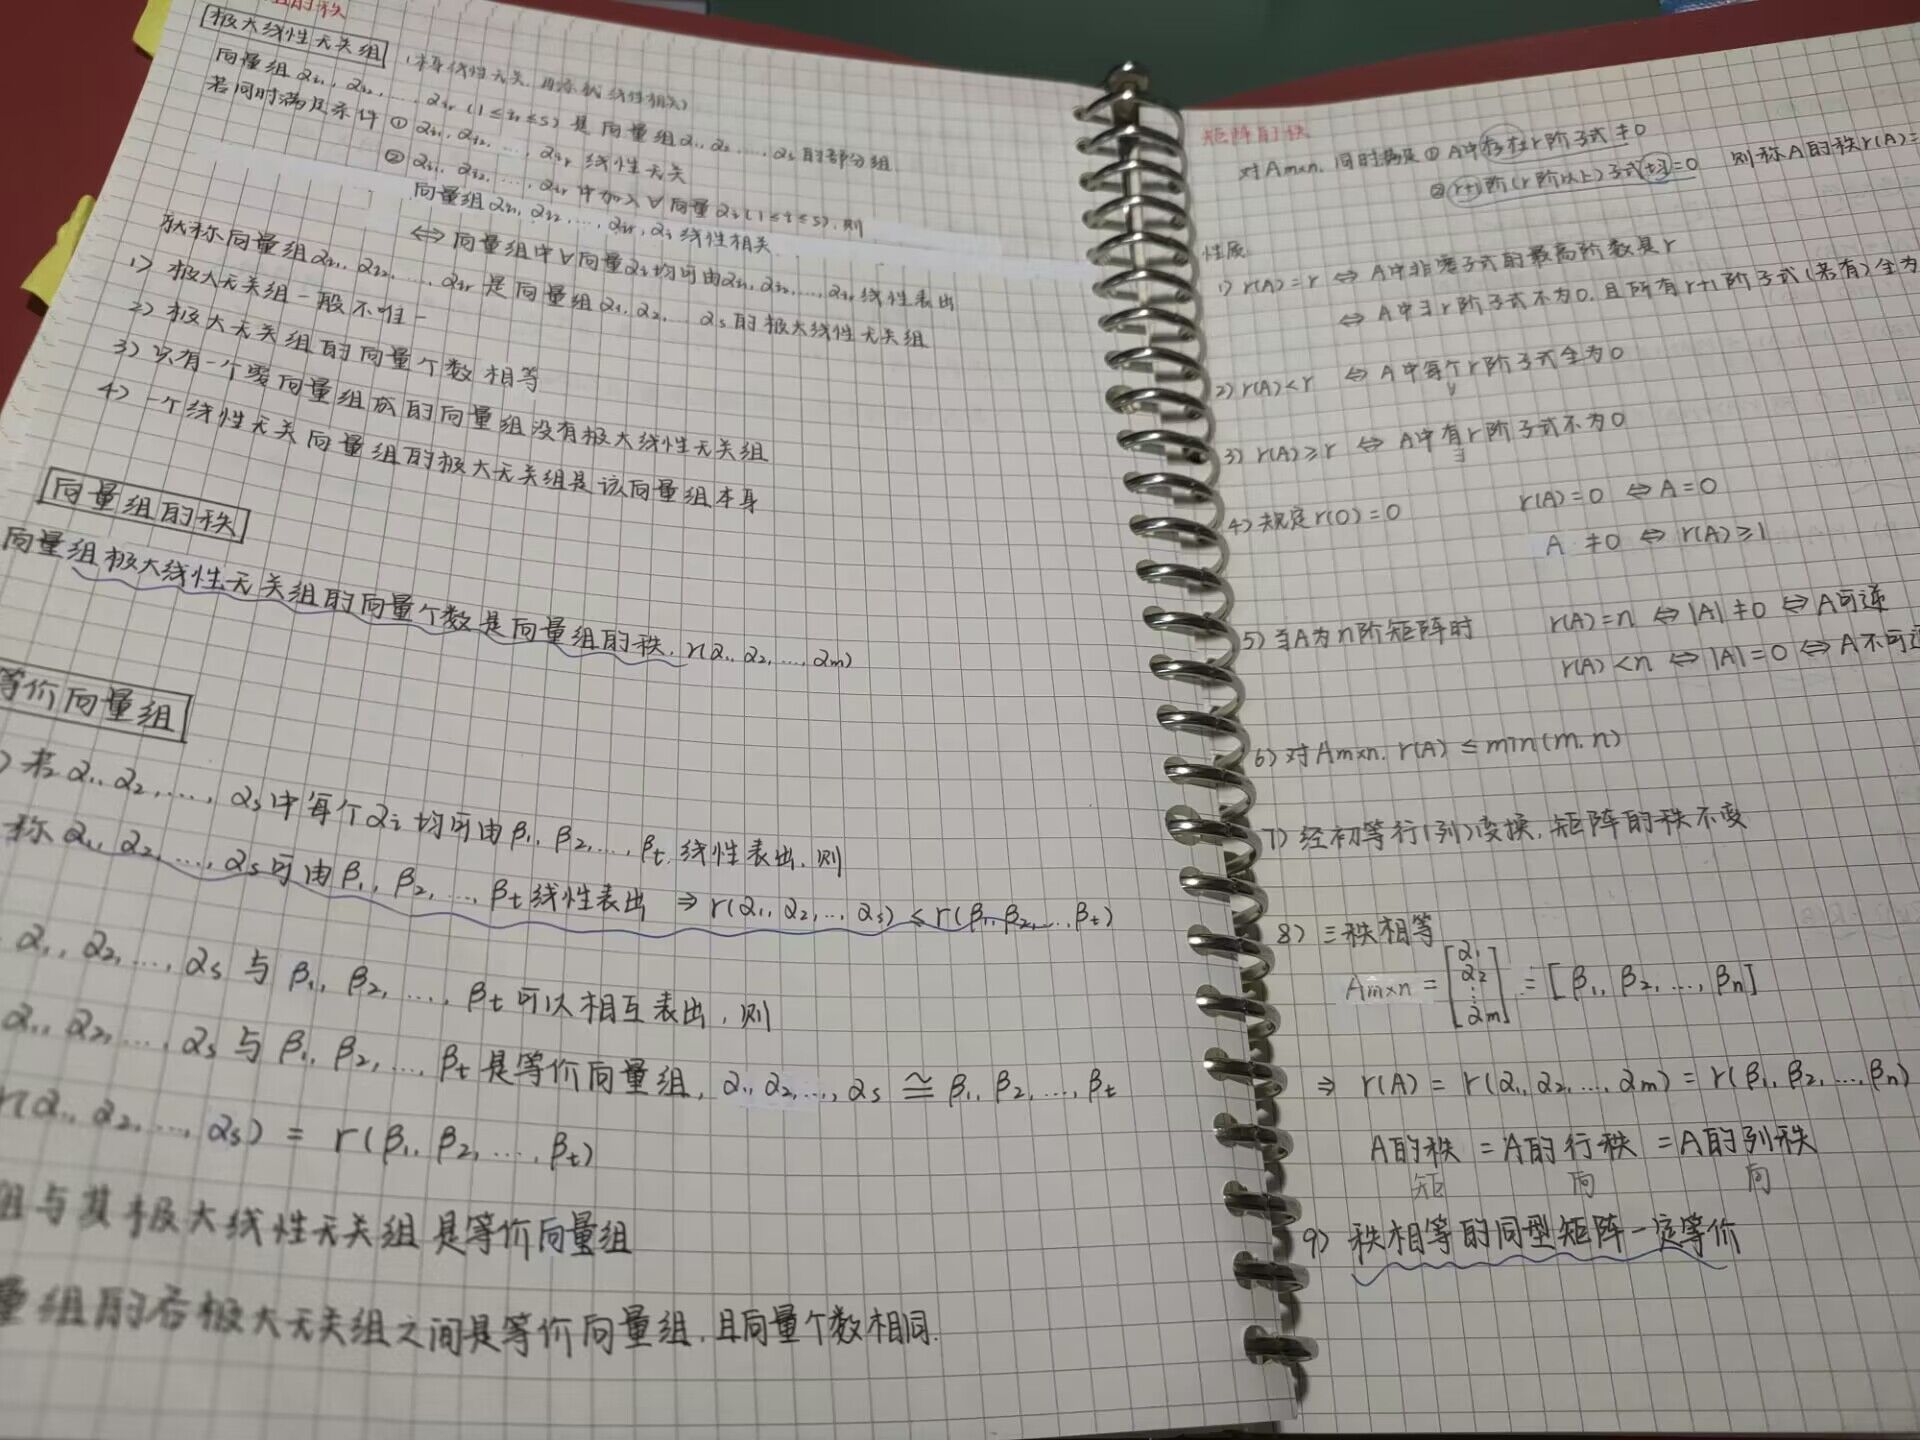 的秩
极大线性无关组
向量组 α_i1, α_i2, ..., α_ir (1≤i_r≤s) 是向量组 α1, α2, ..., αs 的部分组
若同时满足条件 ① α_i1, α_i2, ..., α_ir 线性无关
② α_i1, α_i2, ..., α_ir 中加入∀向量 α_i (1≤i≤s), 则
向量组 α_i1, α_i2, ..., α_ir, α_i 线性相关
⇔ 向量组中∀向量 α_i 均可由 α_i1, α_i2, ..., α_ir 线性表出
就称向量组 α_i1, α_i2, ..., α_ir 是向量组 α1, α2, ... αs 的极大线性无关组
1) 极大无关组一般不唯一
2) 极大无关组的向量个数相等
3) 只有一个零向量组成的向量组没有极大线性无关组
4) 一个线性无关向量组的极大无关组是该向量组本身
向量组的秩
向量组极大线性无关组的向量个数是向量组的秩. r(α1, α2, ..., αm)
等价向量组
) 若 α1, α2, ..., αs 中每个 αi 均可由 β1, β2, ..., βt 线性表出, 则
称 α1, α2, ..., αs 可由 β1, β2, ..., βt 线性表出 ⇒ r(α1, α2, ..., αs) ≤ r(β1, β2, ..., βt)
α1, α2, ..., αs 与 β1, β2, ..., βt 可以相互表出, 则
α1, α2, ..., αs 与 β1, β2, ..., βt 是等价向量组, α1, α2, ..., αs ≅ β1, β2, ..., βt
r(α1, α2, ..., αs) = r(β1, β2, ..., βt)
组与其极大线性无关组是等价向量组
量组的各极大无关组之间是等价向量组, 且向量个数相同.
矩阵的秩
对 Am×n, 同时满足 ① A中存在r阶子式≠0
② r+1阶(r阶以上)子式均=0 则称A的秩r(A)=
性质
1) r(A)=r ⇔ A中非零子式的最高阶数是r
⇔ A中∃r阶子式不为0, 且所有r+1阶子式(若有)全为
2) r(A)<r ⇔ A中每个r阶子式全为0
∀
3) r(A)≥r ⇔ A中有r阶子式不为0
∃
4) 规定r(O)=0 r(A)=0 ⇔ A=0
A ≠0 ⇔ r(A)≥1
5) 当A为n阶矩阵时 r(A)=n ⇔ |A|≠0 ⇔ A可逆
r(A)<n ⇔ |A|=0 ⇔ A不可逆
6) 对Am×n, r(A) ≤ min(m, n)
7) 经初等行(列)变换, 矩阵的秩不变
8) 三秩相等
Am×n = [α1 α2 ⋮ αm] = [β1, β2, ..., βn]
⇒ r(A) = r(α1, α2, ..., αm) = r(β1, β2, ..., βn)
A的秩 = A的行秩 = A的列秩
矩 向 向
9) 秩相等的同型矩阵一定等价